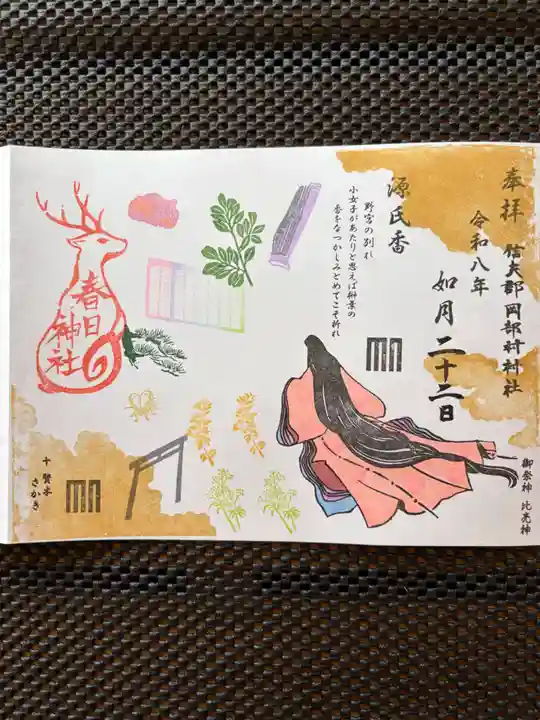 奉拝
信夫郡岡部村村社
令和八年
如月二十二日
御祭神 比売神
源氏香
野宮の別れ
小女子があたりと思えば榊葉の
香をなつかしみとめてこそ折れ
春日
神社
十 賢木
さかき